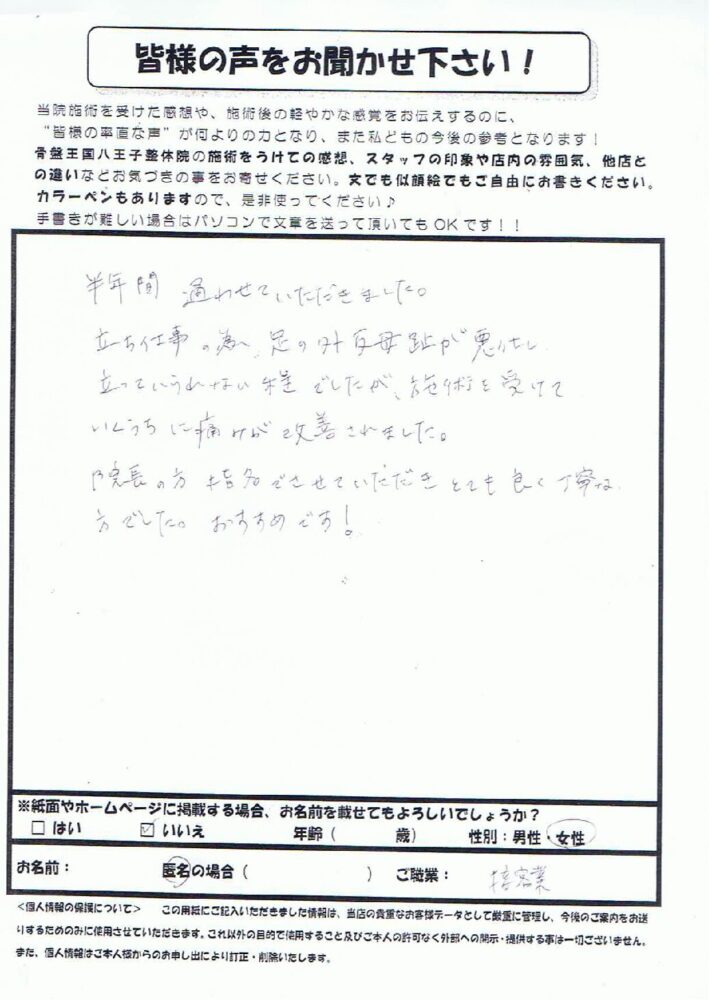 皆様の声をお聞かせ下さい！
当院施術を受けた感想や、施術後の軽やかな感覚をお伝えするのに、
“皆様の率直な声”が何よりの力となり、また私どもの今後の参考となります！
骨盤王国八王子整体院の施術をうけての感想、スタッフの印象や店内の雰囲気、他店と
の違いなどお気づきの事をお寄せください。文でも似顔絵でもご自由にお書きください。
カラーペンもありますので、是非使ってください♪
手書きが難しい場合はパソコンで文章を送って頂いてもOKです！！
半年間 通わせていただきました。
立ち仕事の為、足の外反母趾が悪化し
立っていられない程でしたが、施術を受けて
いくうちに痛みが改善されました。
院長の方 指名でさせていただき とても良く丁寧な
方でした。おすすめです！
※紙面やホームページに掲載する場合、お名前を載せてもよろしいでしょうか？
□ はい ☑ いいえ 年齢（ 歳） 性別：男性・女性
お名前： 匿名の場合（ ） ご職業： 接客業
＜個人情報の保護について＞ この用紙にご記入いただきました情報は、当店の貴重なお客様データとして厳重に管理し、今後のご案内をお送
りするためのみに使用させていただきます。これ以外の目的で使用すること及びご本人の許可なく外部への開示・提供する事は一切ございません。
また、個人情報はご本人様からのお申し出により訂正・削除いたします。